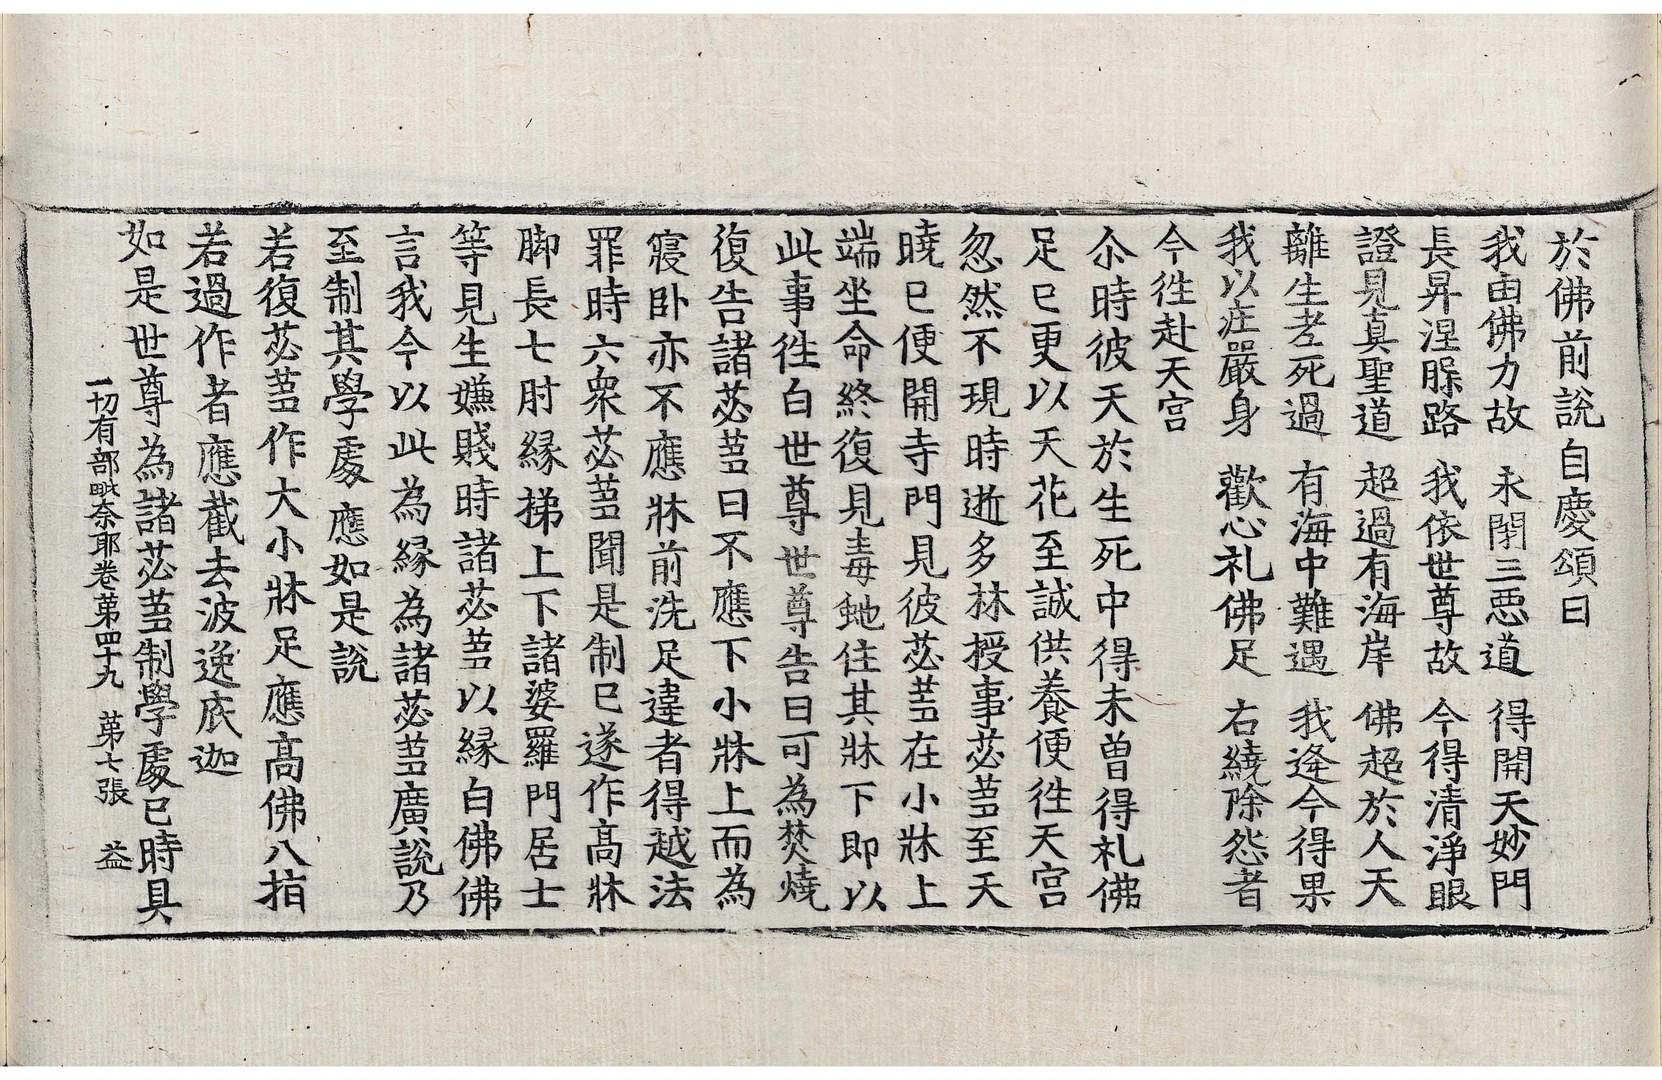 於佛前說自慶頌曰
我由佛力故　永閇三惡道　得開天妙門
長昇涅槃路　我依世尊故　今得清淨眼
證見真聖道　超過有海岸　佛超於人天
離生老死過　有海中難遇　我逢今得果
我以庄嚴身　歡心礼佛足　右繞除怨者
今徃赴天宫
尒時彼天於生死中得未曾得礼佛
足已更以天花至誠供養便徃天宫
忽然不現時逝多林授事苾蒭至天
曉已便開寺門見彼苾蒭在小牀上
端坐命終復見毒虵住其牀下即以
此事徃白世尊世尊告曰可為焚燒
復告諸苾蒭曰不應下小牀上而為
寢卧亦不應牀前洗足違者得越法
罪時六衆苾蒭聞是制已遂作髙牀
脚長七肘緣梯上下諸婆羅門居士
等見生嫌賤時諸苾蒭以緣白佛佛
言我今以此為緣為諸苾蒭廣說乃
至制其學處應如是說
若復苾蒭作大小牀足應髙佛八指
若過作者應截去波逸底迦
如是世尊為諸苾蒭制學處已時具
一切有部毗奈耶卷第四十九　第七張　益